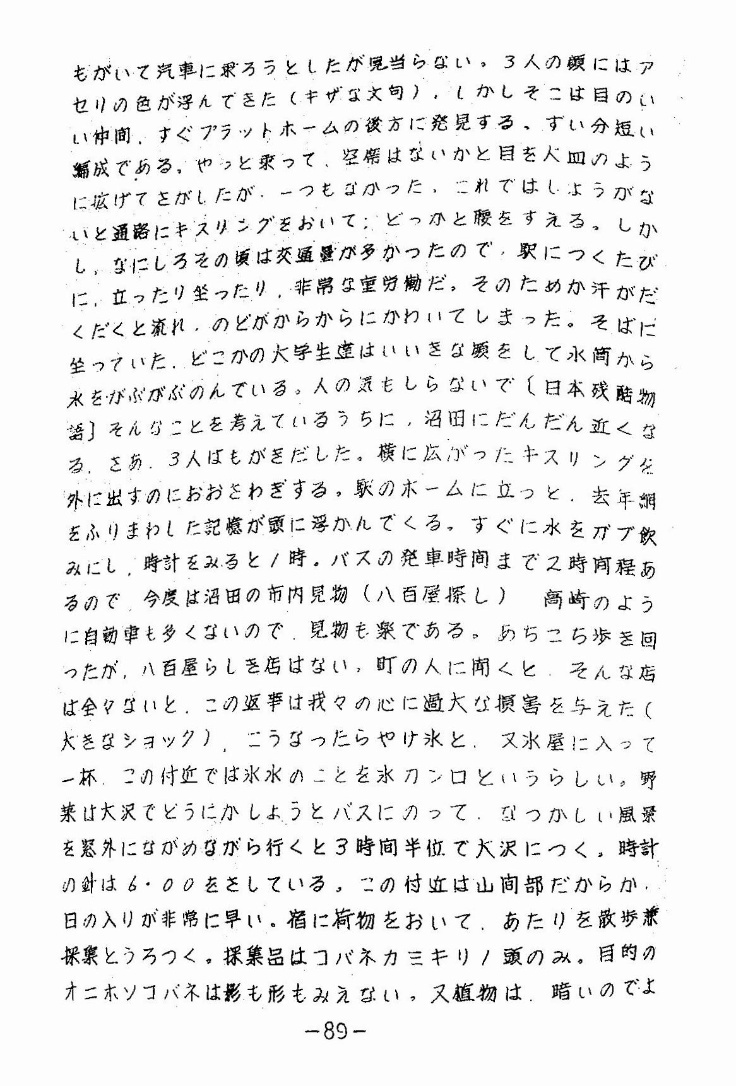 もがいて汽車に乗ろうとしたが見当らない。3人の顔にはア
セリの色が浮んできた(キザな文句)。しかしそこは目のい
い仲間、すぐプラットホームの後方に発見する。ずい分短い
編成である。やっと乗って、空席はないかと目を大皿のよう
に広げてさがしたが、一つもなかった。これではしようがな
いと通路にキスリングをおいて、どっかと腰をすえる。しか
し、なにしろその頃は交通量が多かったので、駅につくたび
に、立ったり坐ったり、非常な重労働だ。そのためか汗がだ
くだくと流れ、のどがからからにかわいてしまった。そばに
坐っていた、どこかの大学生達はいいきな顔をして水筒から
水をがぶがぶのんでいる。人の気もしらないで〔日本残酷物
語〕そんなことを考えているうちに、沼田にだんだん近くな
る。さあ、3人はもがきだした。横に広がったキスリングを
外に出すのにおおさわぎする。駅のホームに立っと、去年網
をふりまわした記憶が頭に浮かんでくる。すぐに水をガブ飲
みにし、時計をみると1時。バスの発車時間まで2時間程あ
るので、今度は沼田の市内見物(八百屋探し) 高崎のよう
に自動車も多くないので、見物も楽である。あちこち歩き回
ったが、八百屋らしき店はない。町の人に聞くと、そんな店
は全々ないと、この返事は我々の心に過大な損害を与えた(
大きなショック)、こうなったらやけ氷と、又氷屋に入って
一杯、この付近では氷水のことを氷カンロというらしい。野
菜は大沢でどうにかしようとバスにのって、なつかしい風景
を窓外にながめながら行くと3時間半位で大沢につく。時計
の針は6・00をさしている。この付近は山間部だからか、
日の入りが非常に早い。宿に荷物をおいて、あたりを散歩兼
採集とうろつく。採集品はコバネカミキリ1頭のみ。目的の
オニホソコバネは影も形もみえない。又植物は、暗いのでよ
-89-